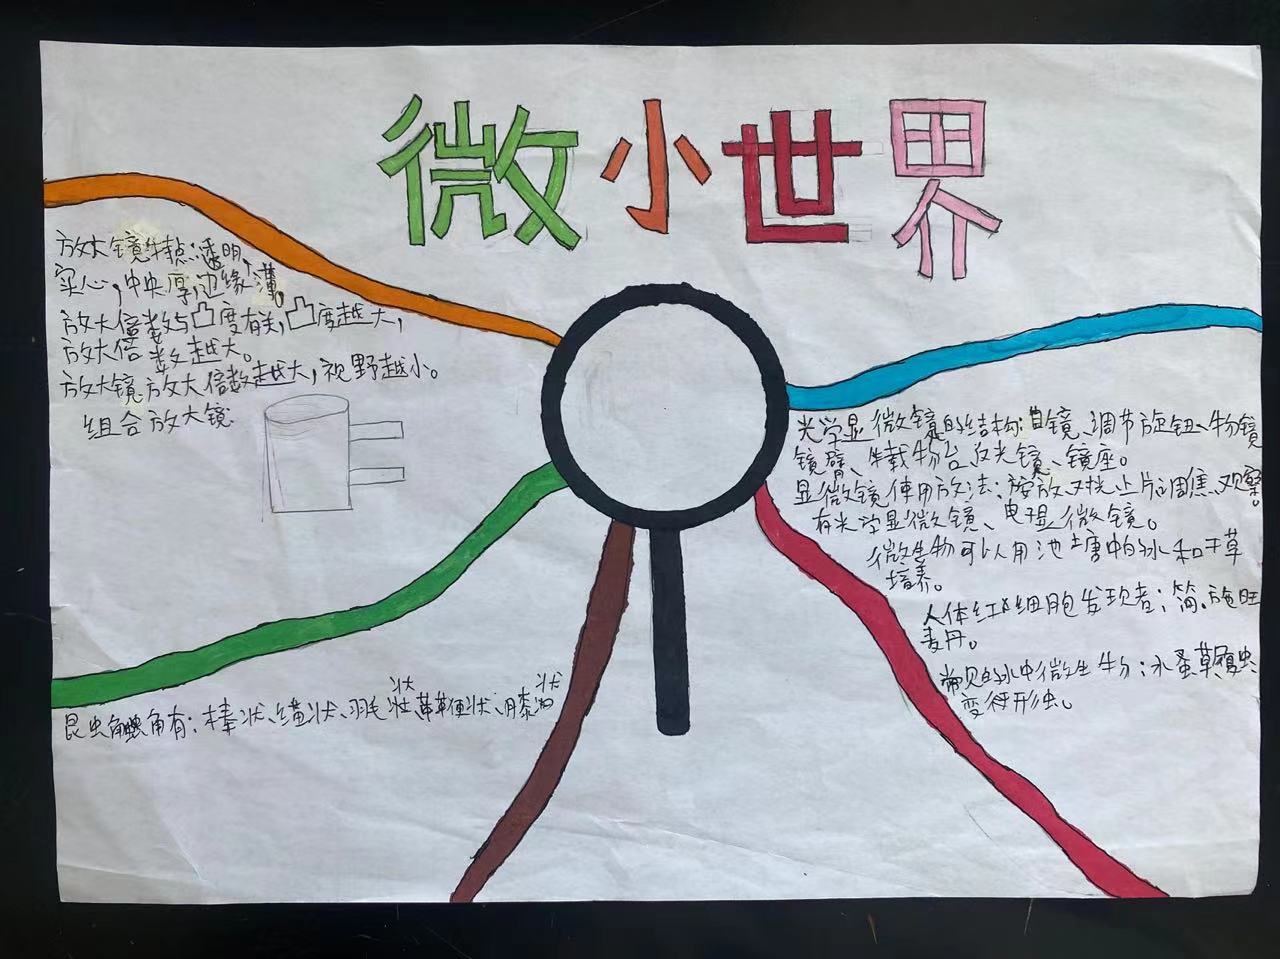 微小世界
放大镜特点:透明、
实心,中央厚,边缘薄。
放大倍数与凸度有关,凸度越大,
放大倍数越大。
放大镜放大倍数越大,视野越小。
组合放大镜:
昆虫触角有:棒状、
羽毛状、鞭状、膝状
光学显微镜的结构:目镜、调节旋钮、物镜
镜臂、载物台反光镜、镜座。
显微镜使用方法:安放对光上片调焦观察。
有光学显微镜、电子显微镜。
微生物可以用池塘中的水和干草
培养。
人体红细胞发现者:简.施旺
麦丹。
常见的水中微生物:水蚤草履虫、
变形虫。